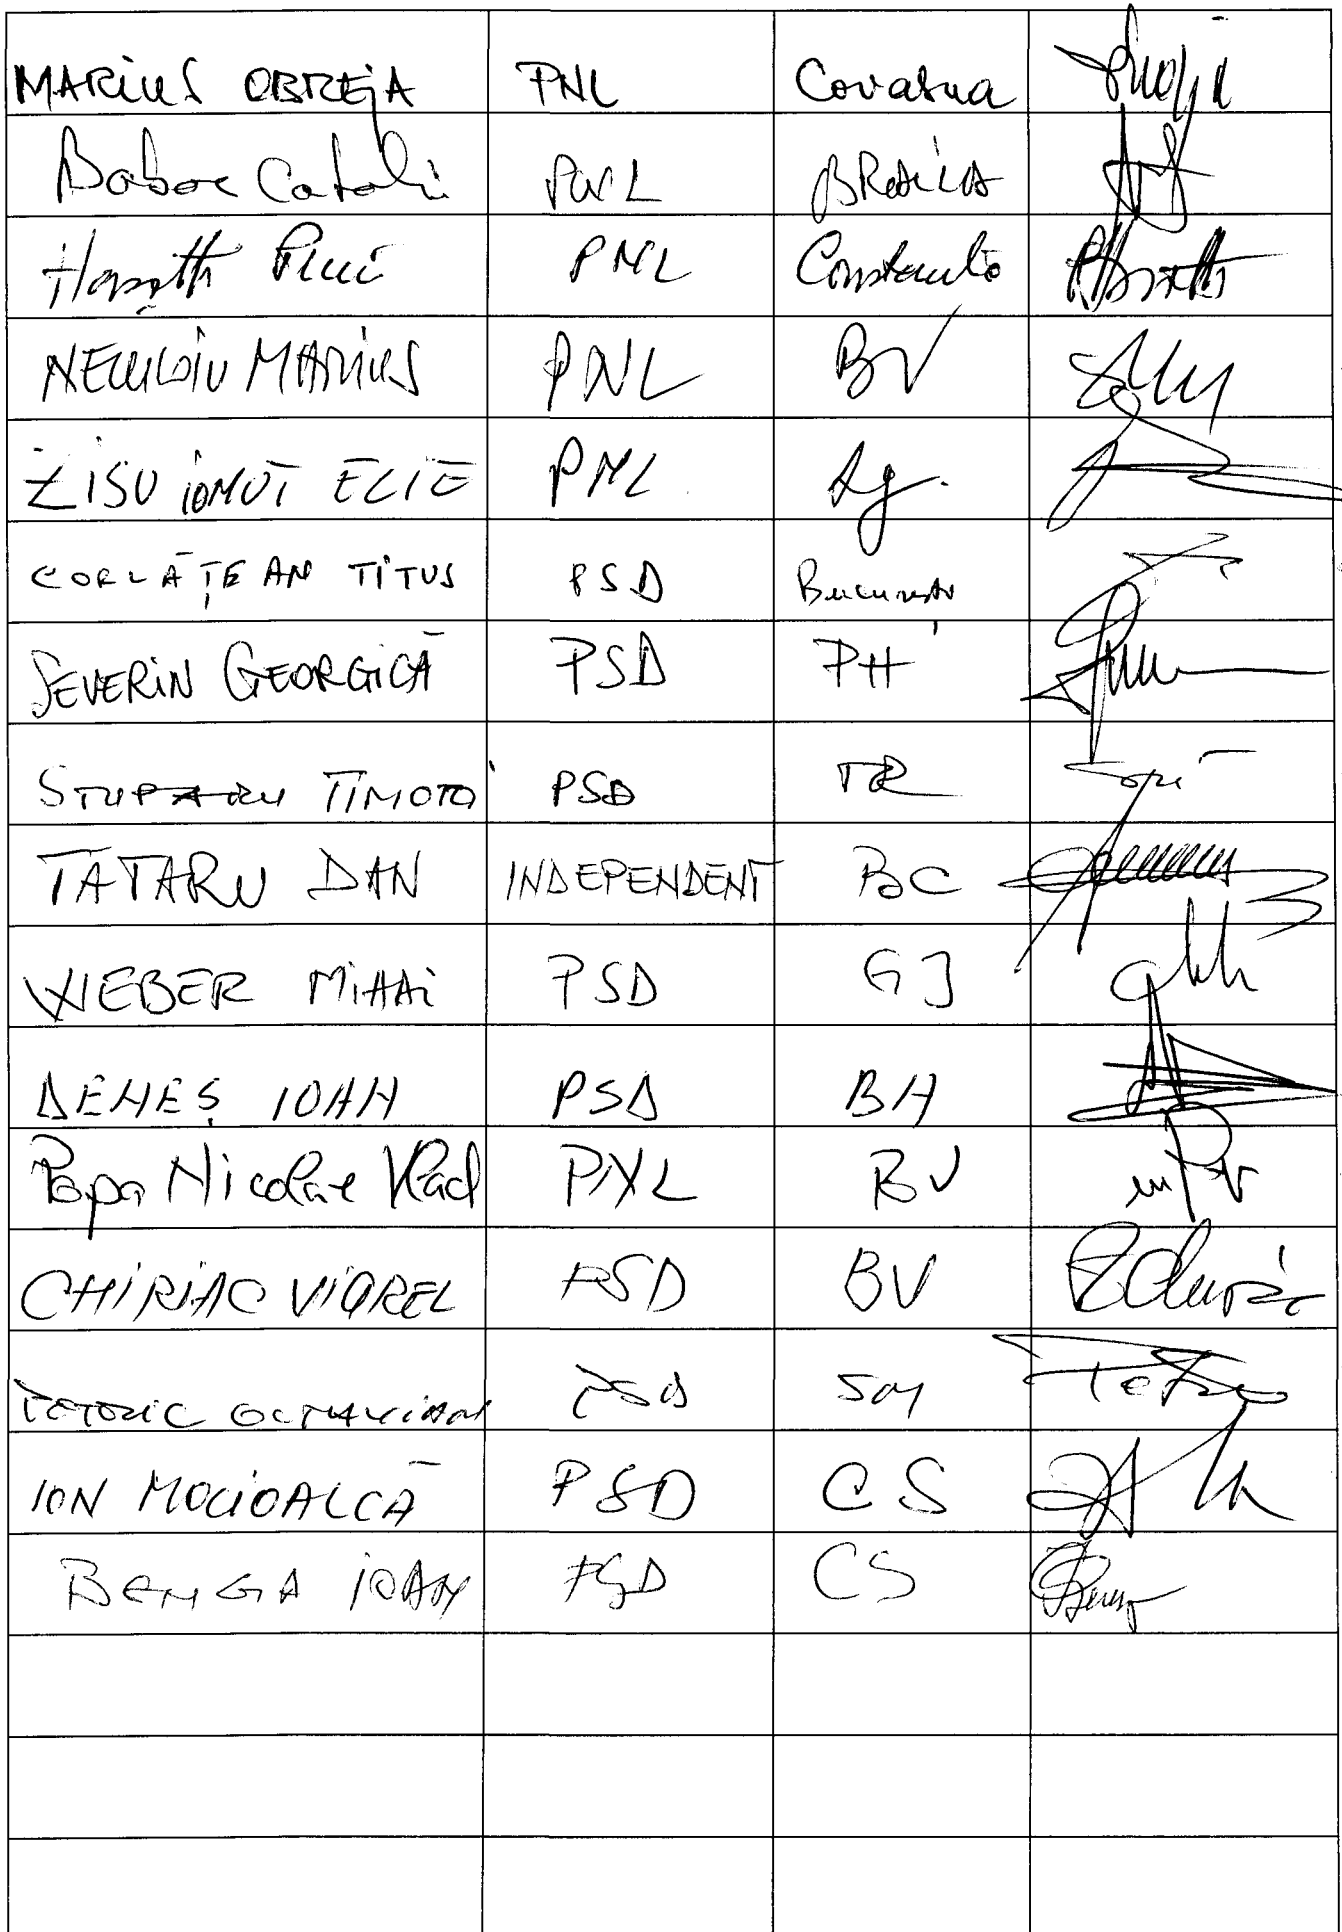 MARIUS OBREJA PNL Covasna
Boboc Catalin PNL BRAILA
PNL Constanta
NECULOIU MARIUS PNL BV
ZISU IONUT ELIE PNL Ag.
CORLĂȚEAN TITUS PSD Bucuresti
SEVERIN GEORGICĂ PSD PH
STUPARU TIMOTEI PSD TR
TATARU DAN INDEPENDENT BC
WEBER MIHAI PSD GJ
DENEȘ IOAN PSD BH
Popa Nicolae Vlad PNL BV
CHIRIAC VIOREL PSD BV
OCTAVIAN PSD
ION MOCIOALCĂ PSD CS
BENGA IOAN PSD CS